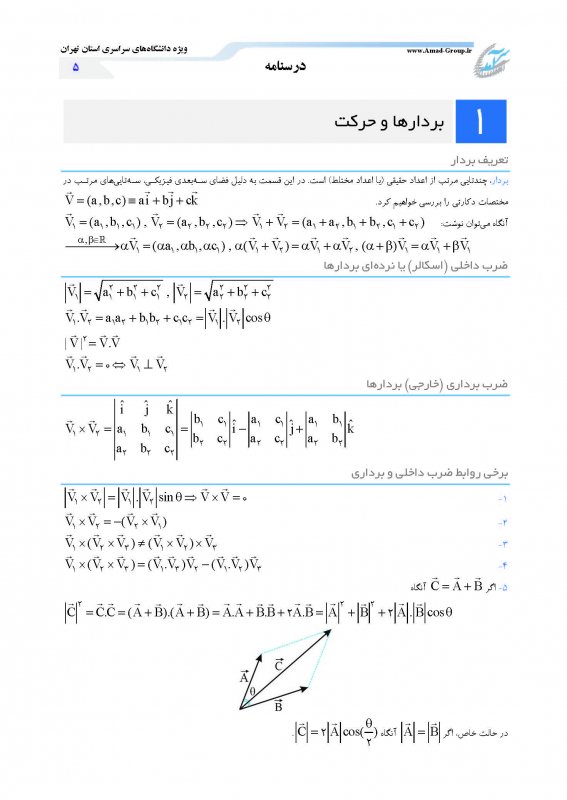 ویژه دانشگاه‌های سراسری استان تهران
www.Amad-Group.ir
درسنامه
۵
۱
بردارها و حرکت
تعریف بردار
بردار، چندتایی مرتب از اعداد حقیقی (یا اعداد مختلط) است. در این قسمت به دلیل فضای سه‌بعدی فیزیکی، سه‌تایی‌های مرتب در
مختصات دکارتی را بررسی خواهیم کرد. V⃗ = (a, b, c) ≡ ai⃗ + bj⃗ + ck⃗
آنگاه می‌توان نوشت: V⃗₁ = (a₁, b₁, c₁) , V⃗₂ = (a₂, b₂, c₂) ⇒ V⃗₁ + V⃗₂ = (a₁ + a₂, b₁ + b₂, c₁ + c₂)
α,β∈ℝ → αV⃗₁ = (αa₁, αb₁, αc₁) , α(V⃗₁ + V⃗₂) = αV⃗₁ + αV⃗₂ , (α + β)V⃗₁ = αV⃗₁ + βV⃗₁
ضرب داخلی (اسکالر) یا نرده‌ای بردارها
|V⃗₁| = √(a₁² + b₁² + c₁²) , |V⃗₂| = √(a₂² + b₂² + c₂²)
V⃗₁.V⃗₂ = a₁a₂ + b₁b₂ + c₁c₂ = |V⃗₁|.|V⃗₂| cos θ
|V⃗|² = V⃗.V⃗
V⃗₁.V⃗₂ = ۰ ⇔ V⃗₁ ⊥ V⃗₂
ضرب برداری (خارجی) بردارها
V⃗₁ × V⃗₂ = |î ĵ k̂; a₁ b₁ c₁; a₂ b₂ c₂| = |b₁ c₁; b₂ c₂| î − |a₁ c₁; a₂ c₂| ĵ + |a₁ b₁; a₂ b₂| k̂
برخی روابط ضرب داخلی و برداری
۱- |V⃗₁ × V⃗₂| = |V⃗₁|.|V⃗₂| sin θ ⇒ V⃗ × V⃗ = ۰
۲- V⃗₁ × V⃗₂ = −(V⃗₂ × V⃗₁)
۳- V⃗₁ × (V⃗₂ × V⃗₃) ≠ (V⃗₁ × V⃗₂) × V⃗₃
۴- V⃗₁ × (V⃗₂ × V⃗₃) = (V⃗₁.V⃗₃)V⃗₂ − (V⃗₁.V⃗₂)V⃗₃
۵- اگر C⃗ = A⃗ + B⃗ آنگاه
|C⃗|² = C⃗.C⃗ = (A⃗ + B⃗).(A⃗ + B⃗) = A⃗.A⃗ + B⃗.B⃗ + ۲A⃗.B⃗ = |A⃗|² + |B⃗|² + ۲|A⃗|.|B⃗| cos θ
C⃗
A⃗
θ
B⃗
در حالت خاص، اگر |A⃗| = |B⃗| آنگاه |C⃗| = ۲|A⃗| cos(θ/۲) .